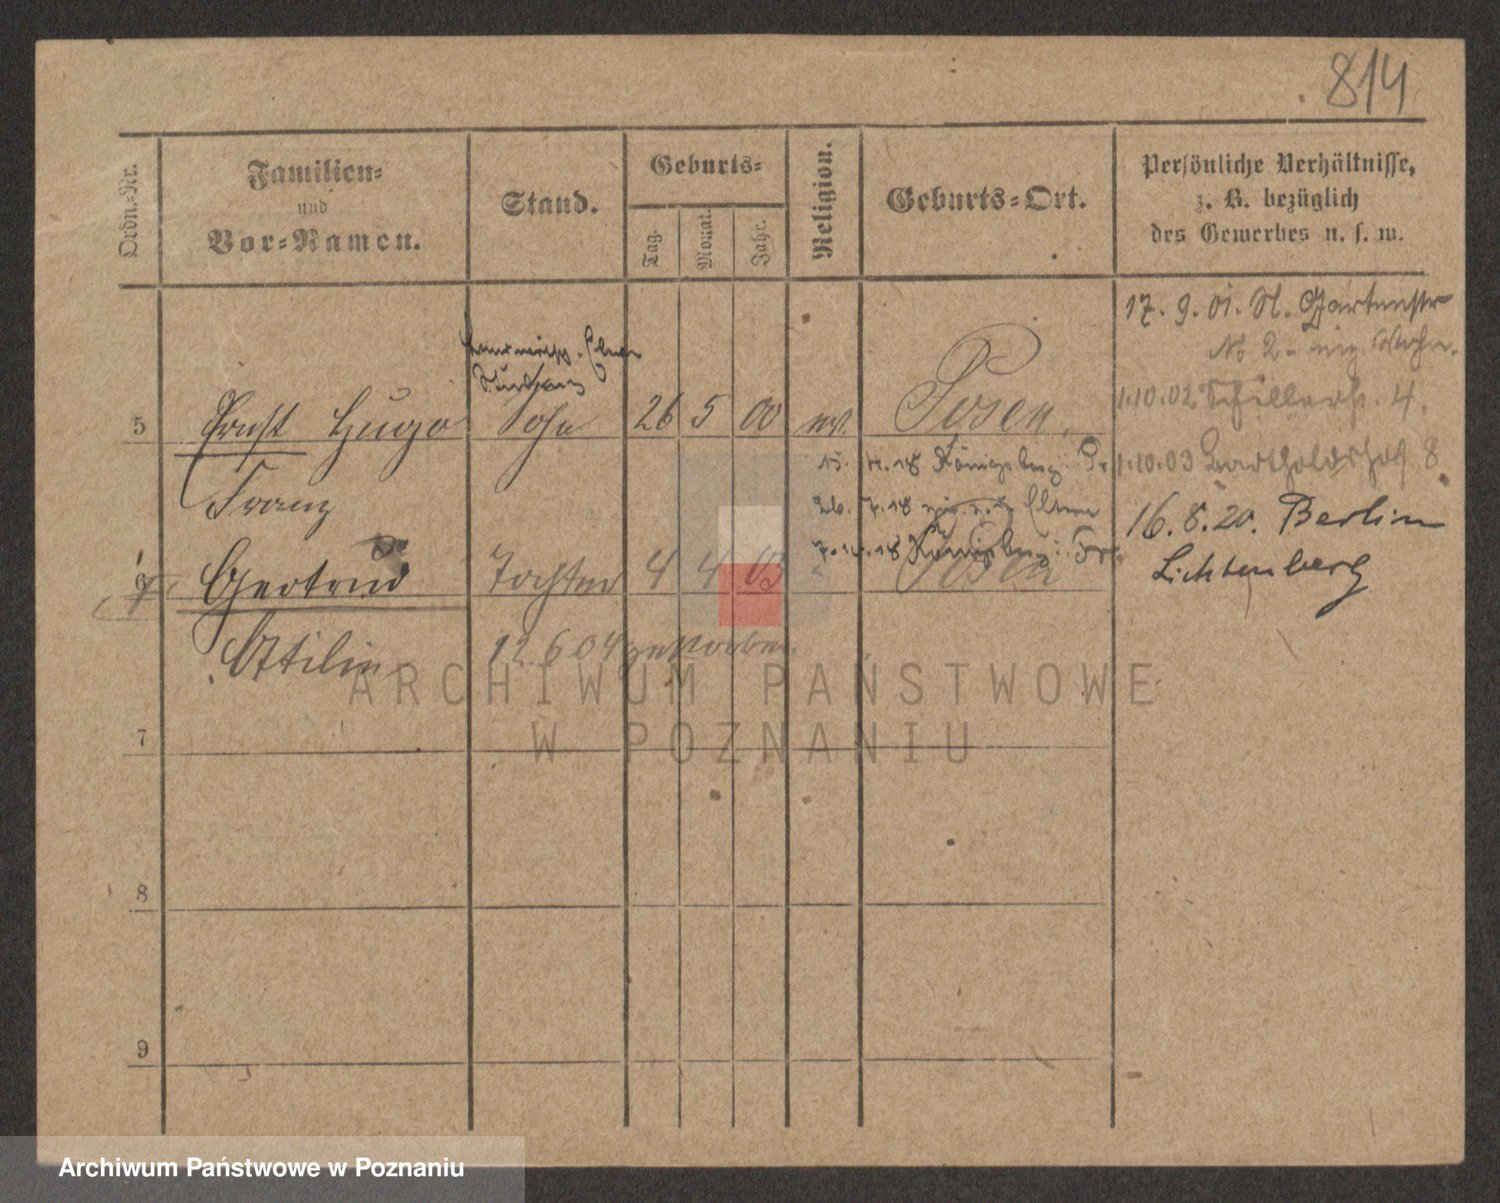 814
Ordn.-Nr.
Familien-
und
Vor-Namen.
Stand.
Geburts-
Tag.
Monat.
Jahr.
Religion.
Geburts-Ort.
Persönliche Verhältnisse,
z. B. bezüglich
des Gewerbes u. s. w.
17. 9. 01. St. Gartenstr
No 2
5 Ernst Hugo Sohn 26 5 00 ev. Posen.
Franz
1.10.02 Schillerstr. 4.
15. 18 Königsberg. Pr
1.10.03 Bartholdshof 8
26. 7.18 Eltern
16.8.20. Berlin
Lichtenberg
18 Königsberg
6 Gertrud Tochter 4 4 03 Posen
Ottilie 12 6 04 gestorben
7
8
9
ARCHIWUM PAŃSTWOWE
W POZNANIU
Archiwum Państwowe w Poznaniu